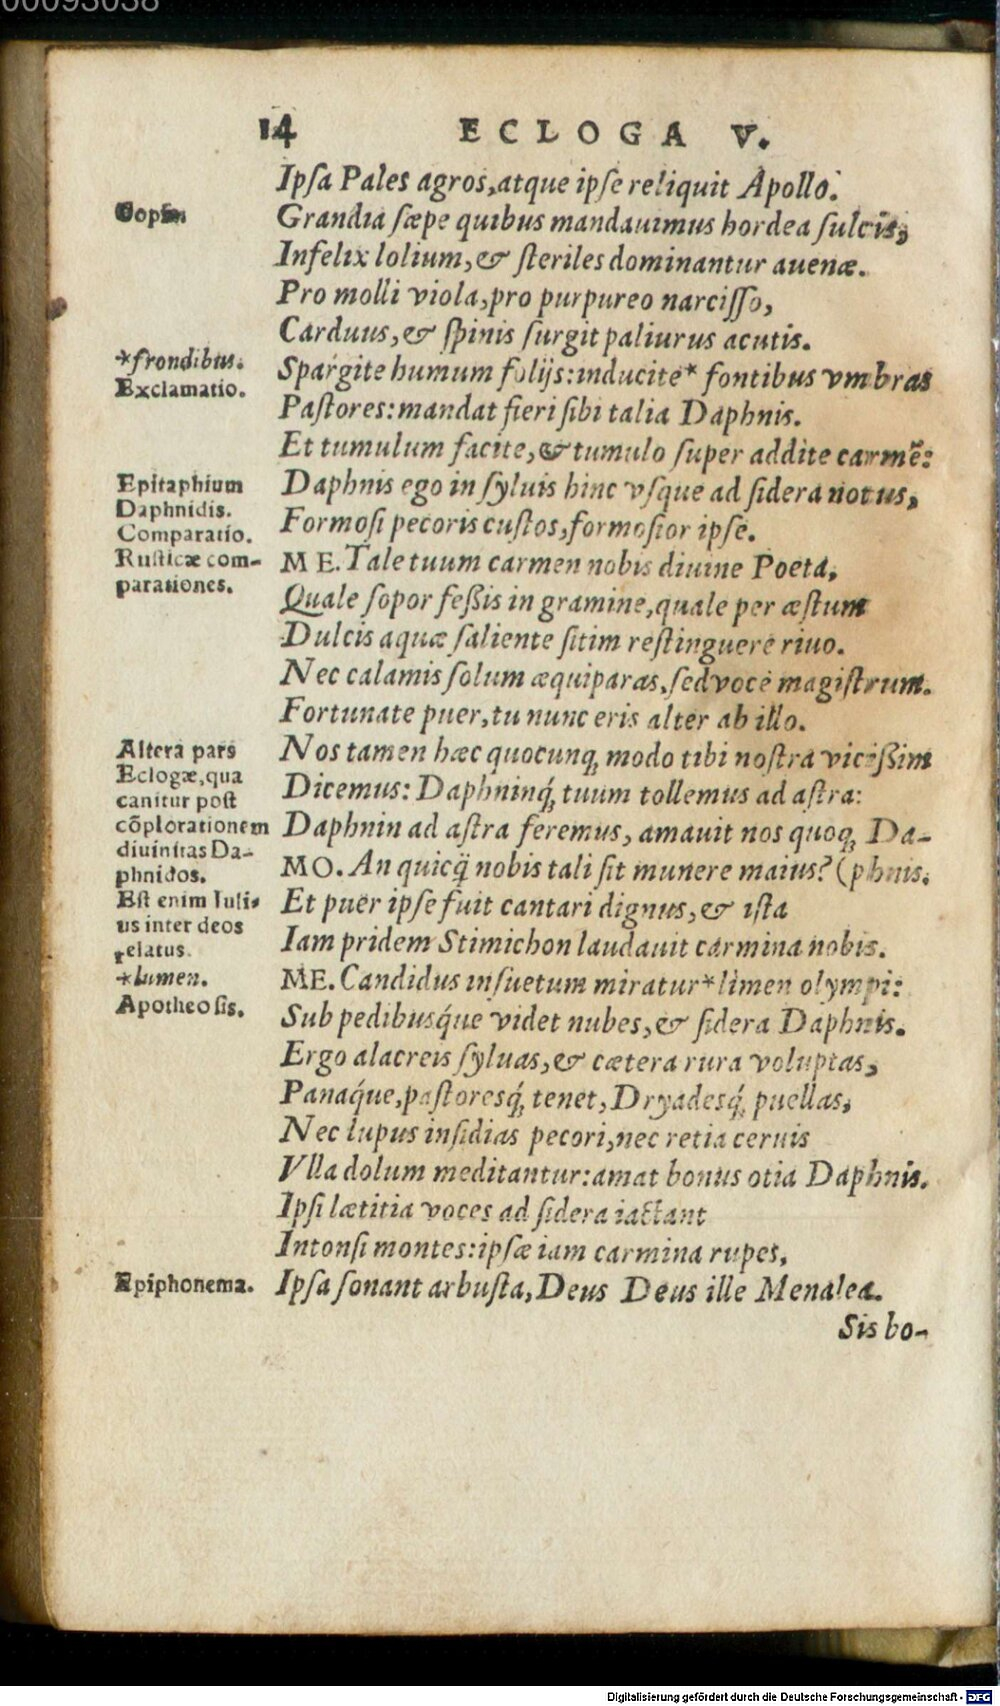 00093038
14 ECLOGA V.
Ipſa Pales agros, atque ipſe reliquit Apollo.
Grandia ſæpe quibus mandauimus hordea ſulcis,
Infelix lolium, & ſteriles dominantur auenæ.
Pro molli viola, pro purpureo narciſſo,
Carduus, & ſpinis ſurgit paliurus acutis.
*frondibus.
Spargite humum folijs: inducite* fontibus vmbras
Exclamatio.
Paſtores: mandat fieri ſibi talia Daphnis.
Et tumulum facite, & tumulo ſuper addite carmẽ:
Epitaphium
Daphnis ego in ſyluis hinc vſque ad ſidera notus,
Daphnidis.
Formoſi pecoris cuſtos, formoſior ipſe.
Comparatio.
Ruſticæ com-
ME. Tale tuum carmen nobis diuine Poeta,
parationes.
Quale ſopor feßis in gramine, quale per æſtum
Dulcis aquæ ſaliente ſitim reſtinguere riuo.
Nec calamis ſolum æquiparas, ſed voce magiſtrum.
Fortunate puer, tu nunc eris alter ab illo.
Altera pars
Nos tamen hæc quocunq; modo tibi noſtra vicißim
Eclogæ, qua
Dicemus: Daphninq́; tuum tollemus ad aſtra:
canitur poſt
cõplorationem
Daphnin ad aſtra feremus, amauit nos quoq; Da-
diuinitas Da-
phnidos.
MO. An quicq̃ nobis tali ſit munere maius? (phnis.
Eſt enim Iuli-
Et puer ipſe fuit cantari dignus, & iſta
us inter deos
Iam pridem Stimichon laudauit carmina nobis.
relatus.
*lumen.
ME. Candidus inſuetum miratur* limen olympi:
Apotheoſis.
Sub pedibusq́ue videt nubes, & ſidera Daphnis.
Ergo alacreis ſyluas, & cætera rura voluptas,
Panaq́ue, paſtoresq́; tenet, Dryadesq́; puellas,
Nec lupus inſidias pecori, nec retia ceruis
Vlla dolum meditantur: amat bonus otia Daphnis.
Ipſi lætitia voces ad ſidera iactant
Intonſi montes: ipſæ iam carmina rupes,
Epiphonema.
Ipſa ſonant arbuſta, Deus Deus ille Menalca.
Sis bo-
Digitalisierung gefördert durch die Deutsche Forschungsgemeinschaft - DFG